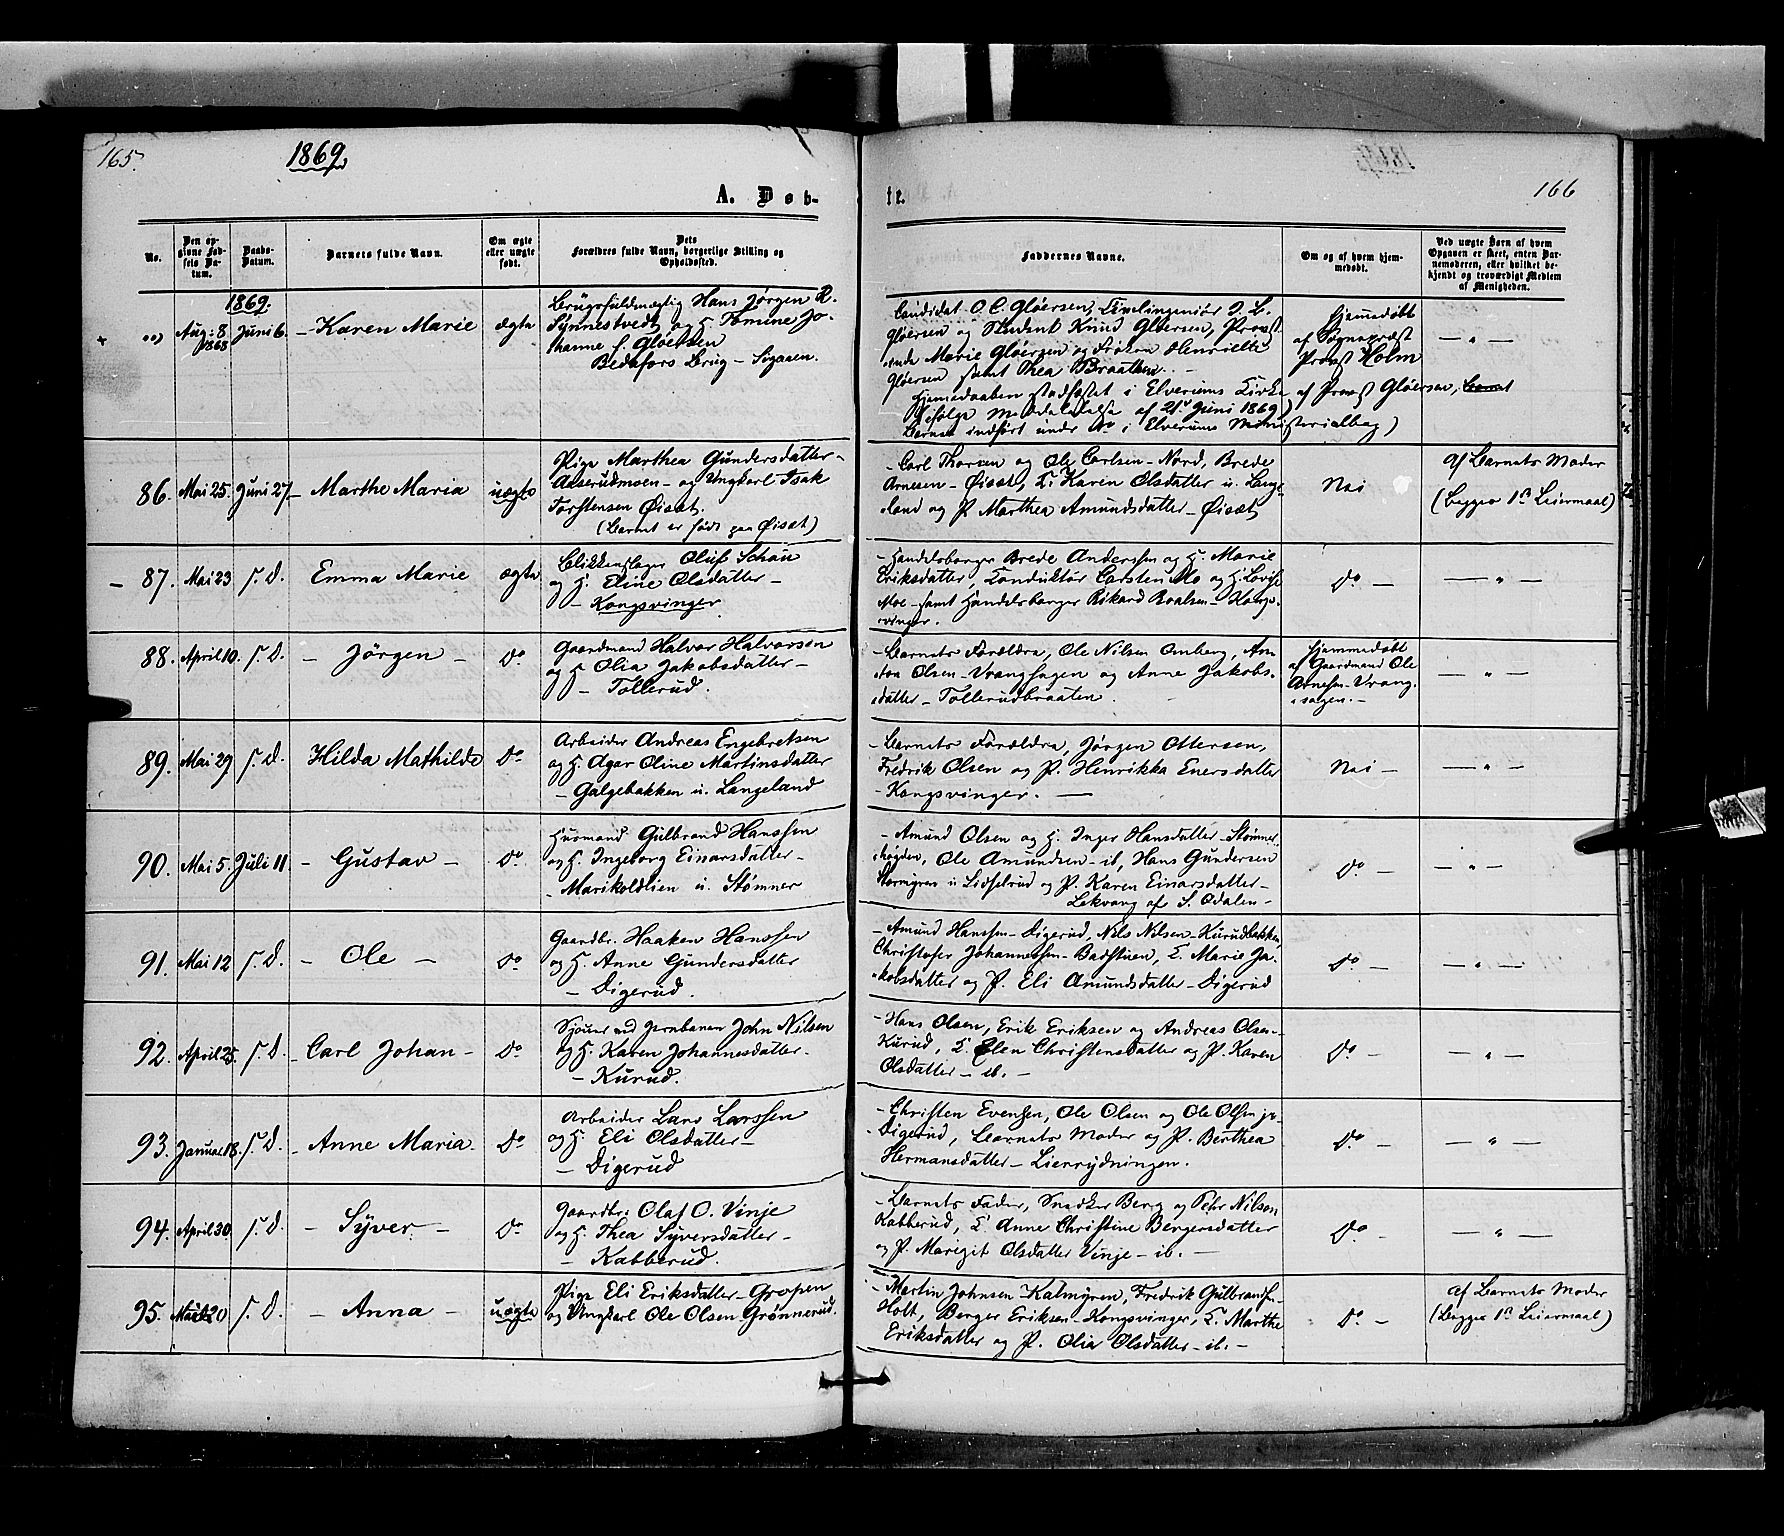 165.
1869.
A. Døb-
No.
Den op-
givne Fød-
sels Da-
tum.
Daabs-
Datum.
Barnets fulde Navn.
Om ægte
eller uægte
født.
Dets
Forældres fulde Navn, borgerlige Stilling og
Opholdssted.
1869.
+ "") Aug: 8 1868 Juni 6. - Karen Marie ægte
Brugsfuldmægtig Hans Jørgen R.
Synnestvedt og H. Tomine Jo-
hanne f. Gløersen
Bedafors Brug - Sigaasen.
86. Mai 25. Juni 27. - Marthe Maria uægte
Pige Marthea Gundersdatter -
Aaserudmoen - og Ungkarl Isak
Torstensen Øisæt.
(Barnet er født paa Øisæt)
- 87. Mai 23 s. D. Emma Marie ægte
Blikkenslager Oluf Schøu
og H. Eline Olsdatter -
- Kongsvinger
88. April 10. s. D. - Jörgen - do
Gaardmand Halvor Halvorsen
og H. Olia Jakobsdatter -
- Tollerud.
89. Mai 29 s. D. Hilda Mathilde do
Arbeider Andreas Engebretsen
og H. Agar Oline Martinsdatter
- Galgebakken u. Langeland
90. Mai 5. Juli 11 - Gustav - do
Husmand Gulbrand Hanssen
og H. Ingeborg Einarsdatter -
- Marikoldlien u. Stømner
91. Mai 12 s. D. - Ole - do
Gaardbr. Haaken Hanssen
og H. Anne Gundersdatter
- Digerud.
92. April 25. s. D. - Carl Johan - do
Sjouer ved Jernbanen John Nilsen
og H. Karen Johannesdatter -
- Kurud.
93. Januar 18. s. D. - Anne Maria - do
Arbeider Lars Larssen
og H. Eli Olsdatter -
- Digerud
94. April 30 s. D. - Syver - do
Gaardbr. Olaf O. Vinje
og H. Thea Syversdatter -
- Kabberud.
95. s. D. - Anna - uægte
Pige Eli Eriksdatter - Gropen
og Ungkarl Ole Olsen Grønnerud.
166
te.
Faddernes Navne.
Om og af hvem hjem-
medøbt.
Ved uægte Børn af hvem
Opgaven er skeet, enten Bar-
nemoderen, eller hvilket be-
kjendt og troværdigt Medlem
af Menigheden.
Candidat O. C. Gløersen, Civilingeniør J. B.
Gløersen og Student Knud Gløersen, Provst-
inde Marie Gløersen og Frøken Henriette
Gløersen samt Thea Braathen. -
Hjemmedaaben stadfæstet i Elverums Kirke af Provst Gløersen,
ifølge Meddelelse af 21de Juni 1869)
Barnet indført under No i Elverums Ministerialbog)
Hjemmedøbt
af Sognepræst
Provst Holm
- " -
- Carl Thorsen og Ole Carlsen - Nord, Brede
Arnesen - Øisæt, K. Karen Olsdatter u. Lange-
land og P. Marthea Amundsdatter - Øisæt
Nei
af Barnets Moder
(begges 1ste Leiermaal)
- Handelsborger Brede Anderssen og H. Marie
Eriksdatter, Konduktør Carsten Mo og H. Lovise
Moe - samt Handelsborger Rikard Roalsen - Kongs-
vinger.
do -
- " -
- Barnets Forældre, Ole Nilsen Omberg, An-
ton Olsen - Vranghagen og Anne Jakobs-
datter - Tollerudbraaten
Hjemmedøbt
af Gaardmand Ole
Arnesen - Vrang-
hagen. -
- " -
- Barnets Forældre, Jørgen Ottersen,
Fredrik Olsen og P. Henrikka Enersdatter
- Kongsvinger. -
Nei -
- " -
- Amund Olsen og H. Inger Hansdatter - Stømner-
høgden, Ole Amundsen - ib., Hans Gundersen
u Lidserud og P. Karen Einarsdatter -
Lekvang af S. Odalen -
do -
- " -
- Amund Hanssen - Digerud, Nils Nilsen - Kurudbakken,
Christofer Johannessen - Badstuen, K. Marie Ja-
kobsdatter og P. Eli Amundsdatter - Digerud
do -
- " -
- Hans Olsen, Erik Eriksen og Andreas Olsen -
Kurud, K. Elen Christensdatter og P. Karen
Olsdatter - ib. -
do -
- " -
- Christen Evensen, Ole Olsen og Ole Olsen ju -
- Digerud, Barnets Moder og P. Berthea
Hermansdatter - Lierrydningen.
do -
- " -
- Barnets Fader, Snedker Berg og Pehr Nilsen
Kabberud, K. Anne Christine Bergersdatter
og P. Maregit Olsdatter Vinje - ib. -
do -
- " -
- Martin Johnsen - Kalmyren, Fredrik Gulbrands. -
Holt, Berger Eriksen - Kongsvinger, K. Marthe
Eriksdatter og P. Olia Olsdatter - ib. -
do -
af Barnets Moder
(begges 1ste Leiermaal)